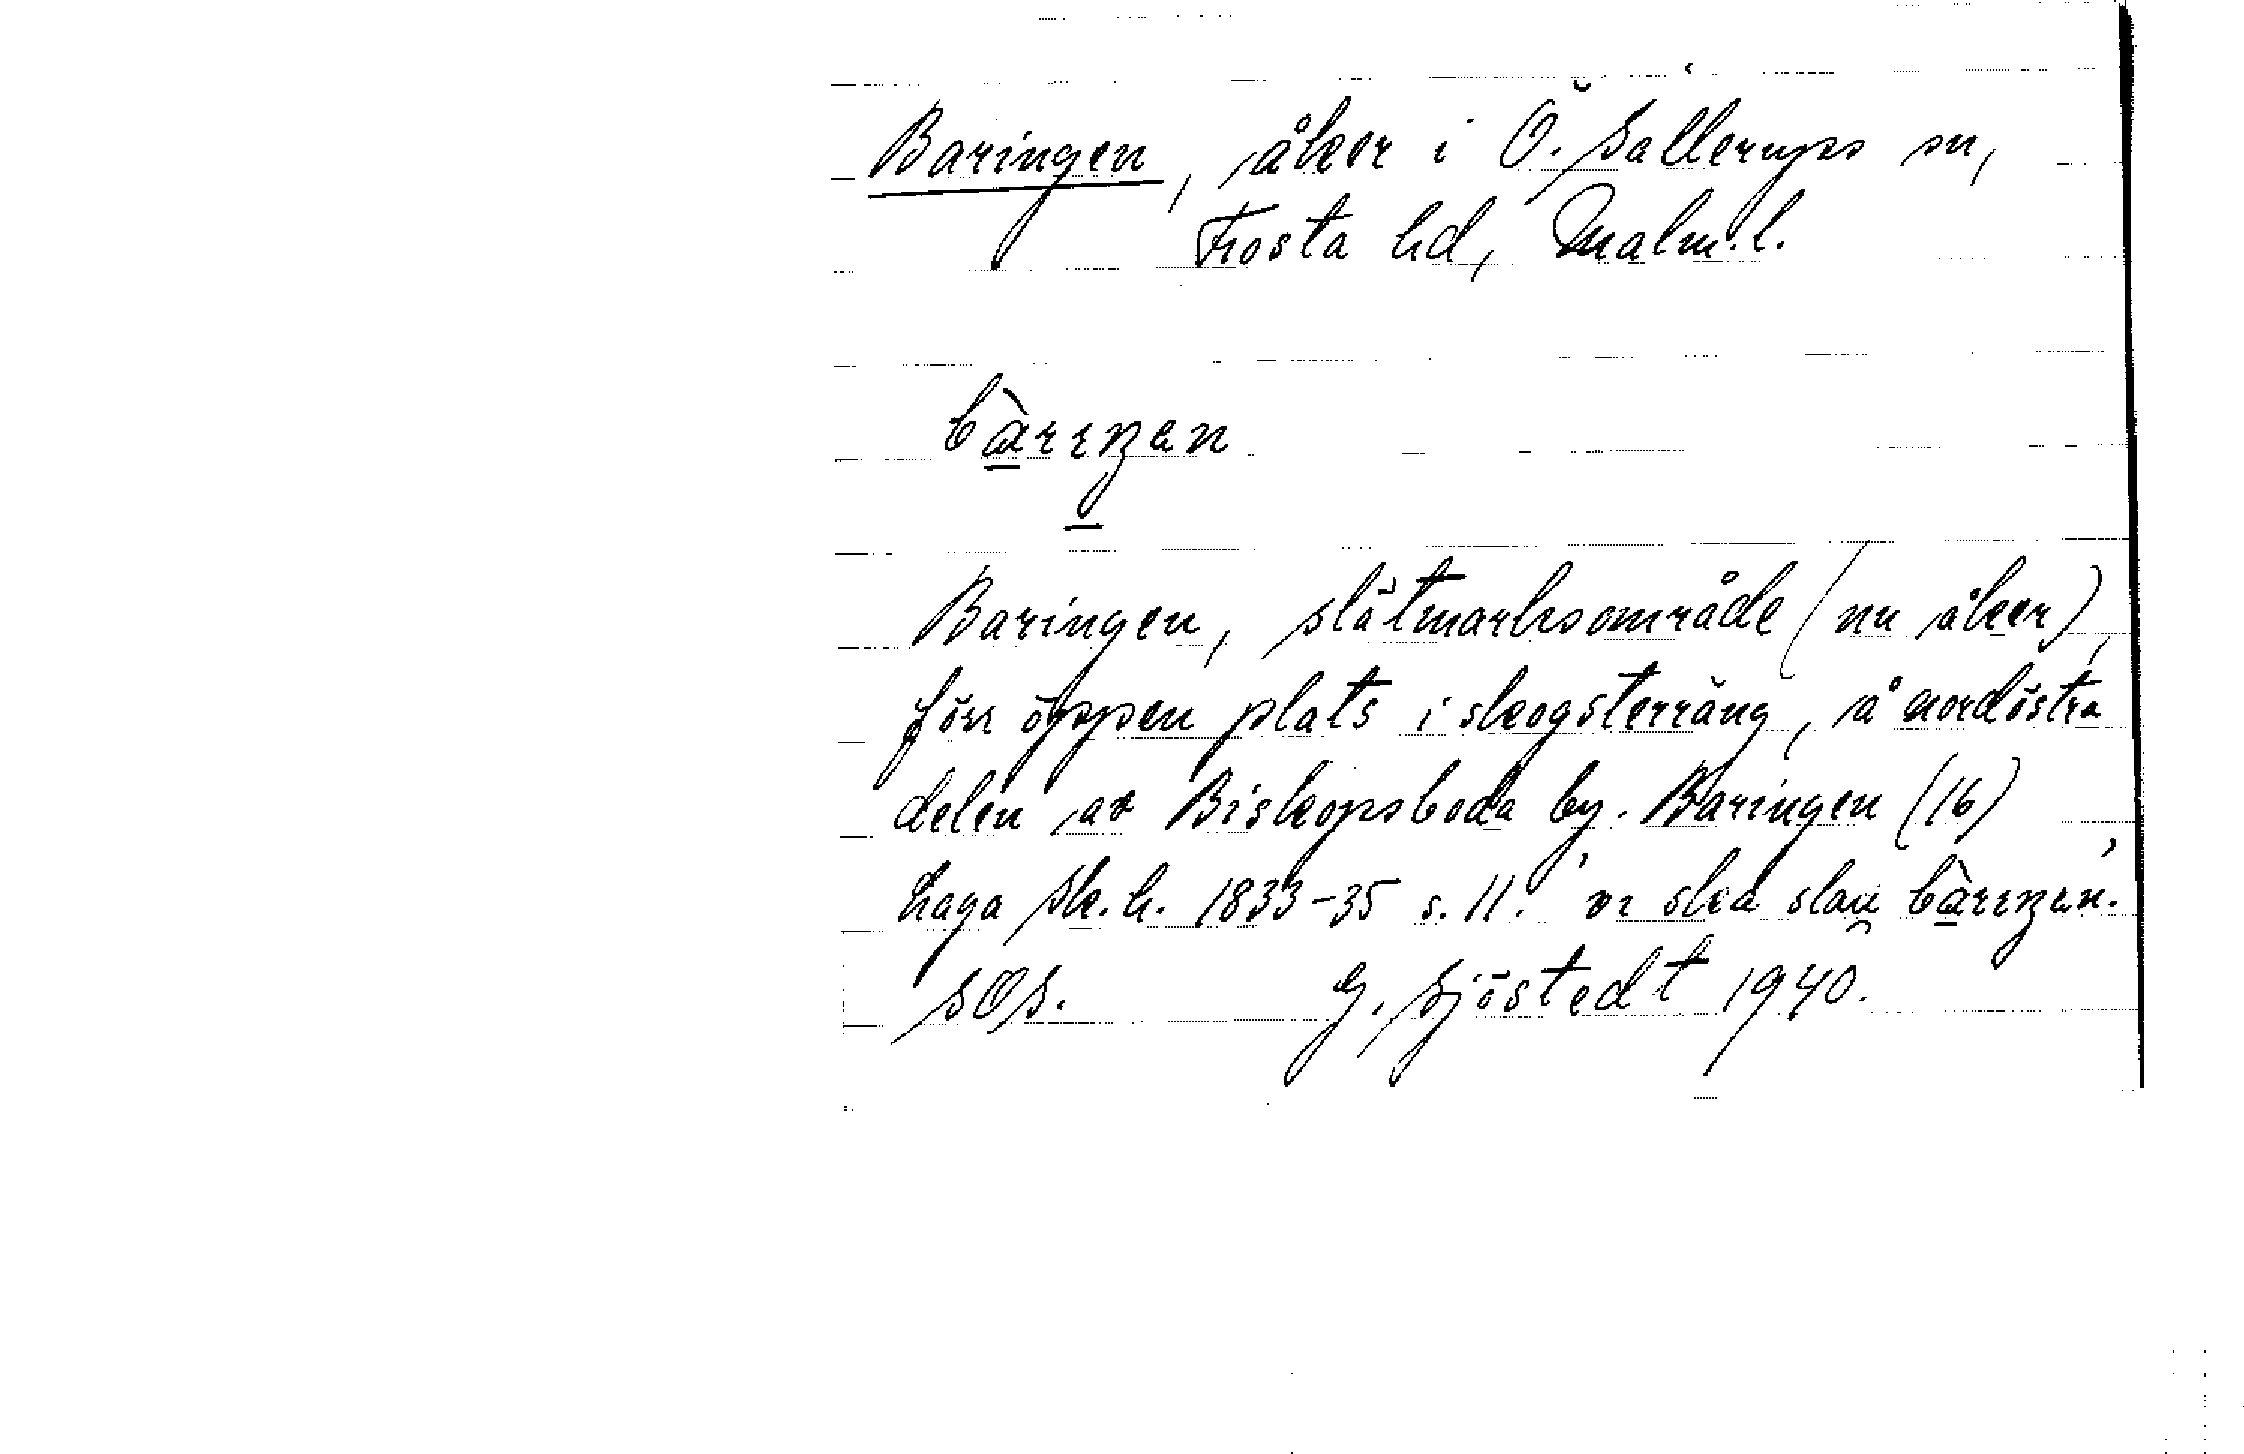 Baringen, åker i Ö. Sallerups sn,
Frosta hd, Malm. l.
bàrıŋen
Baringen, slåtmarksområde (nu åker),
förr öppen plats i skogsterräng, å nordöstra
delen av Biskopsboda by. Baringen (16)
haga Sk. h. 1833-35 s. 11. 'vı ska slau bàrıŋen.'
SOS. G. Sjöstedt 1940.